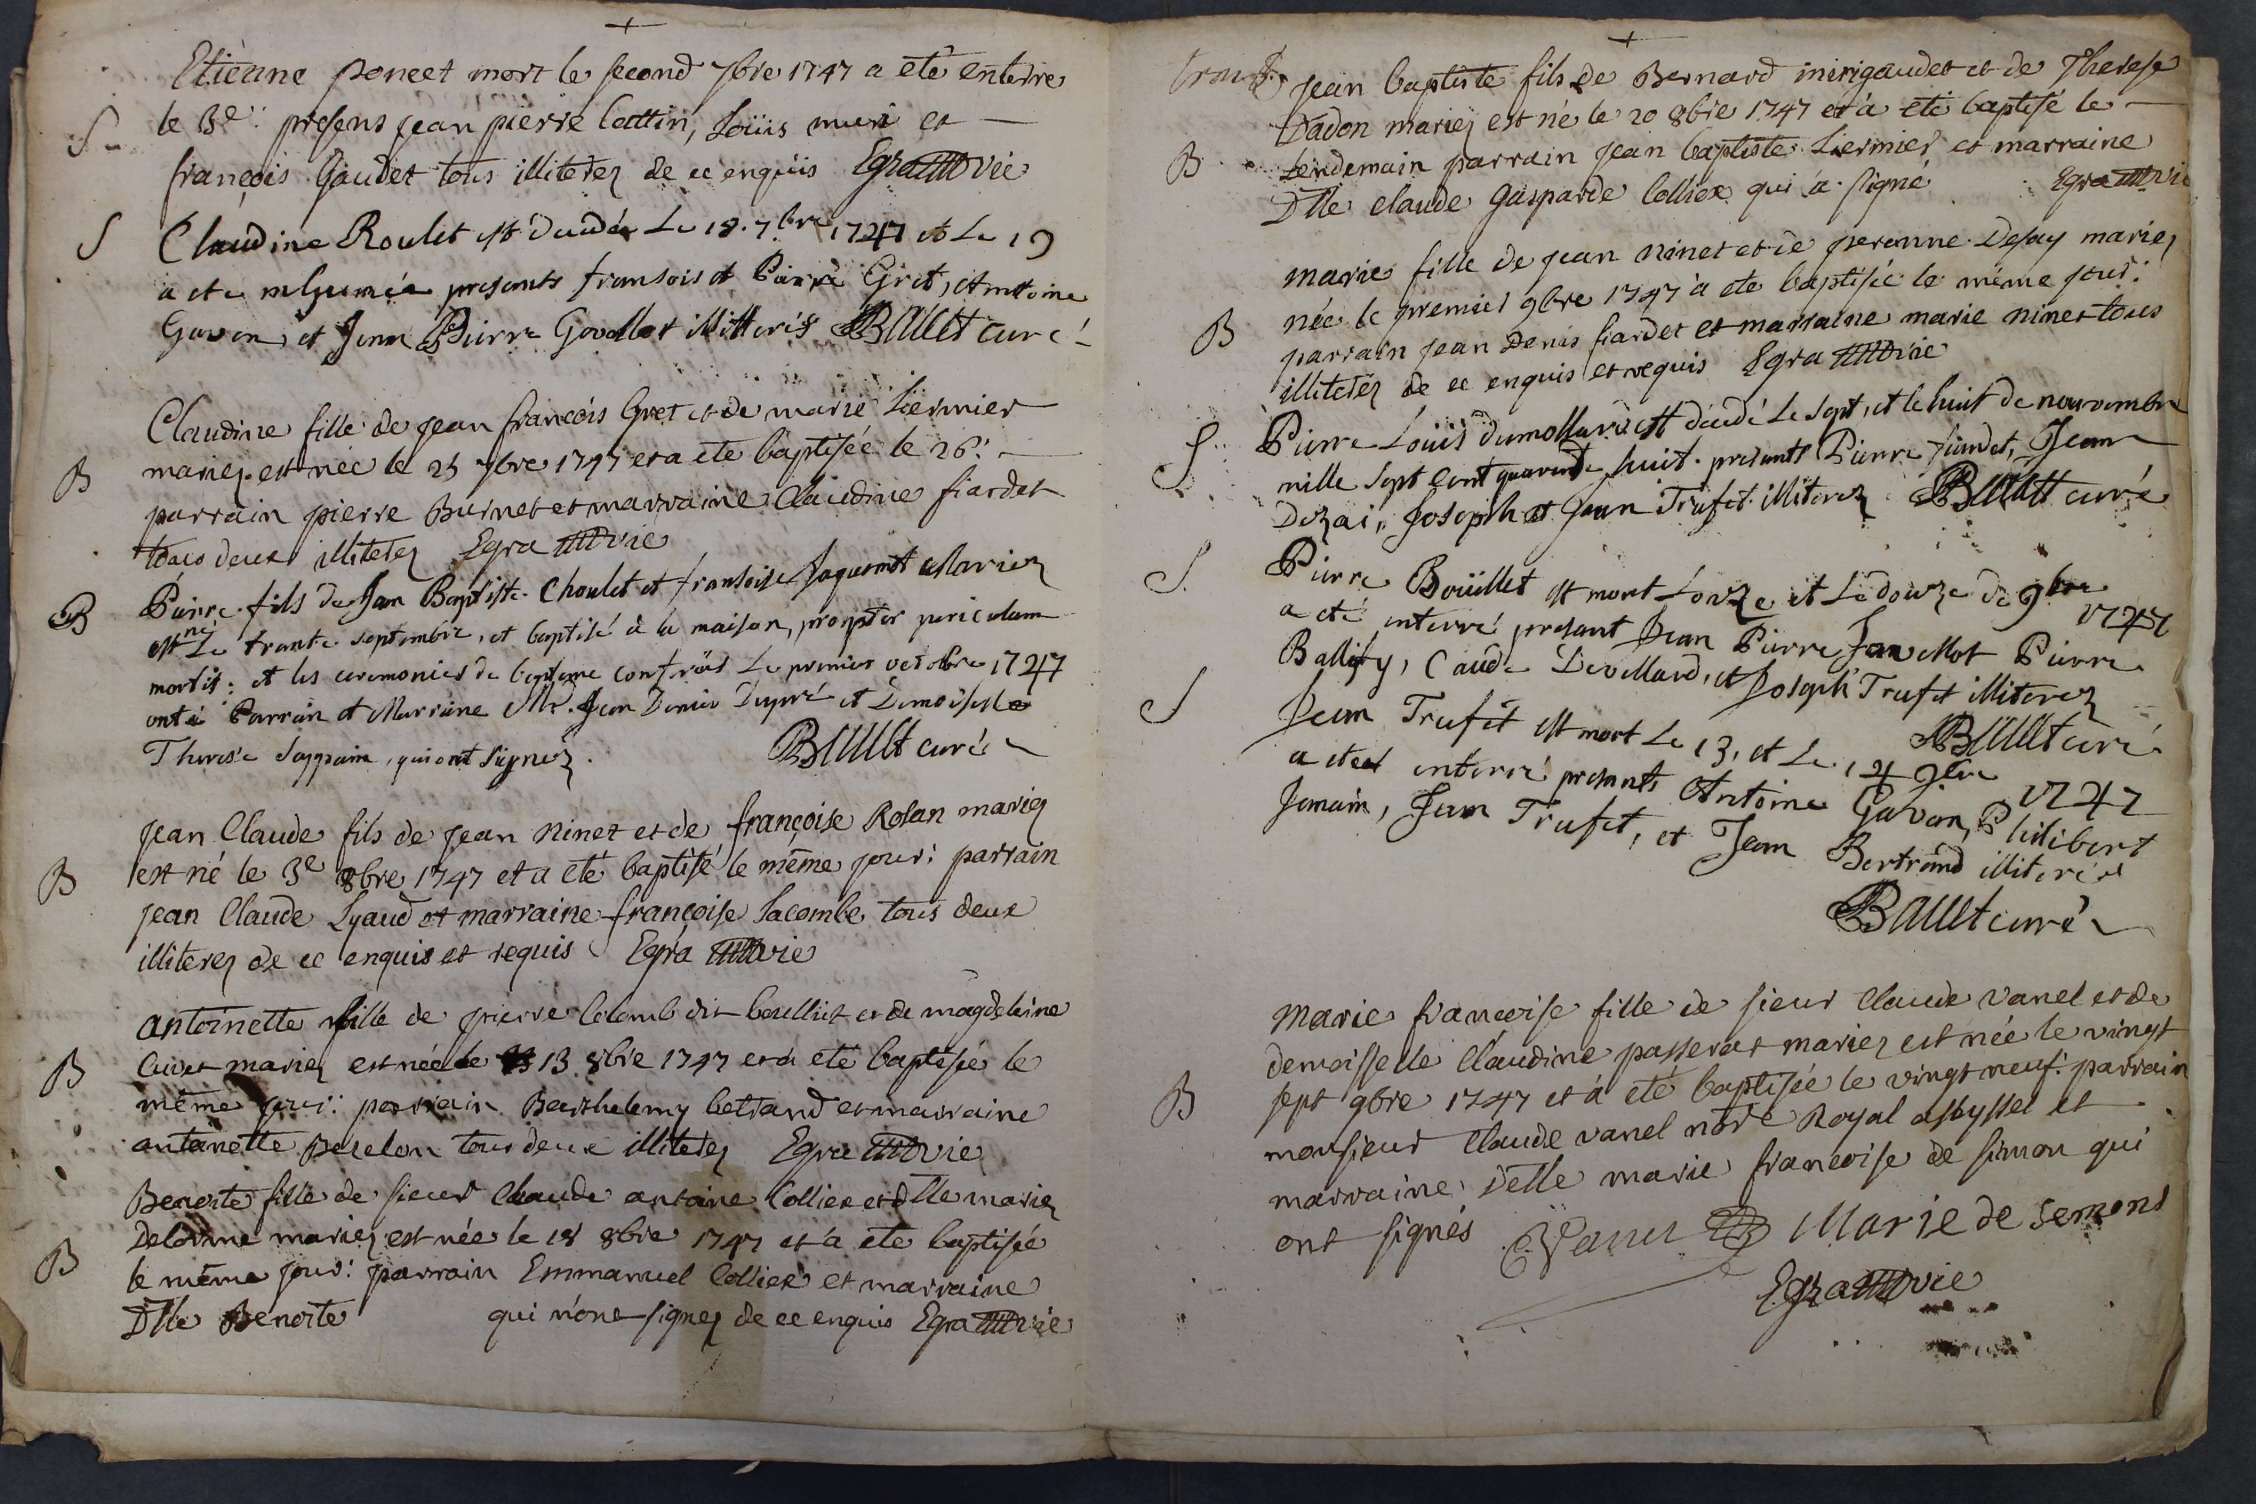 Etienne poncet mort le second 7bre 1747 a eté enterre
S le 3e presens jean pierre Cottin, Loüis muri et
françois Gaudet tous illiterez de ce enquis Egra vic
S Claudine Roulet est décédée Le 18. 7bre 1747 et Le 19
a ete inhumée presents fransois et Pierre Gret, Antoine
Gavon, et Jean Pierre Govellot illitteris curé
Claudine fille de jean françois Gret et de marie Liermier
B mariez est née le 25 7bre 1747 et a ete baptisée le 26:
parrain pierre Burnet et marraine Claudine fiardet
tous deux illiterez Egra vic
B Pierre fils de Jean Baptiste Choulet et fransoise Jaquemet Mariez
est né Le trante septembre, et baptisé à la maison, propter periculum
mortis: et les ceremonies de bapteme conferées Le premier octobre 1747
onté Parrain et Marraine Mr. Jean Denis Dupré et Demoiselle
Therese Sappain, qui ont signez. curé
jean Claude fils de jean ninet et de françoise Rosan mariez
B est né le 3e 8bre 1747 et a eté baptisé le même jour: parrain
jean Claude Lyaud et marraine françoise Lacombe tous deux
illiterez de ce enquis et requis Egra vic
antoinette fille de pierre Colomb dit boulliet et de magdeleine
B Cuiet mariez est née le 13 8bre 1747 et a eté baptisée le
même jour: parrain Barthelemy betrand et marraine
antoinette Berelon tous deux illiterez Egra vic
Benoite fille de sieur Claude antoine Colliex et dlle marie
Delorme mariez est née le 18 8bre 1747 et a ete baptisée
B le même jour: parrain Emmanuel Colliex et marraine
Dlle Benoite qui n'ont signez de ce enquis Egra vic
jean baptiste fils de Bernard mirigaudet et de Therese
Dadon mariez est né le 20 8bre 1747 et a eté baptisé le
B Lendemain parrain jean baptiste Liermier et marraine
Dlle claude Gasparde Colliex qui a signé Egra vic
marie fille de jean ninet et de peronne Defay mariez
née le premier 9bre 1747 à ete baptisée le même jour:
B parrain jean Denis fiardet et marraine marie ninet tous
illiterez de ce enquis et requis Egra vic
S Pierre Loüis dumollard est décédé Le sept, et le huit de nouvembre
mille sept cent quarente huit. presents Pierre fiardet, Jean
Dezai, Joseph et Jean Trufet illiterez curé
S. Pierre Boüillet est mort L'onze et Le douze de 9bre
a eté enterré presant Jean Pierre Javellot Pierre 1747
Ballify, Caude Devillard, et Joseph Trufet illiterez
curé
S Jean Trufet est mort Le 13, et Le 14 9bre
a eteé enterré presents Antoine Gavon, Philibert 1747
Jemain, Jean Trufet, et Jean Bertrand illiterés
curé
marie francoise fille de sieur Claude vanel et de
demoisselle Claudine passerat mariez est née le vingt
B sept 9bre 1747 et à eté baptisée le vingt neuf: parrain
monsieur Claude vanel notre Royal a Seyssel et
marraine Delle marie francoise de simon qui
ont signés Vanel Marie de semons
Egra vic